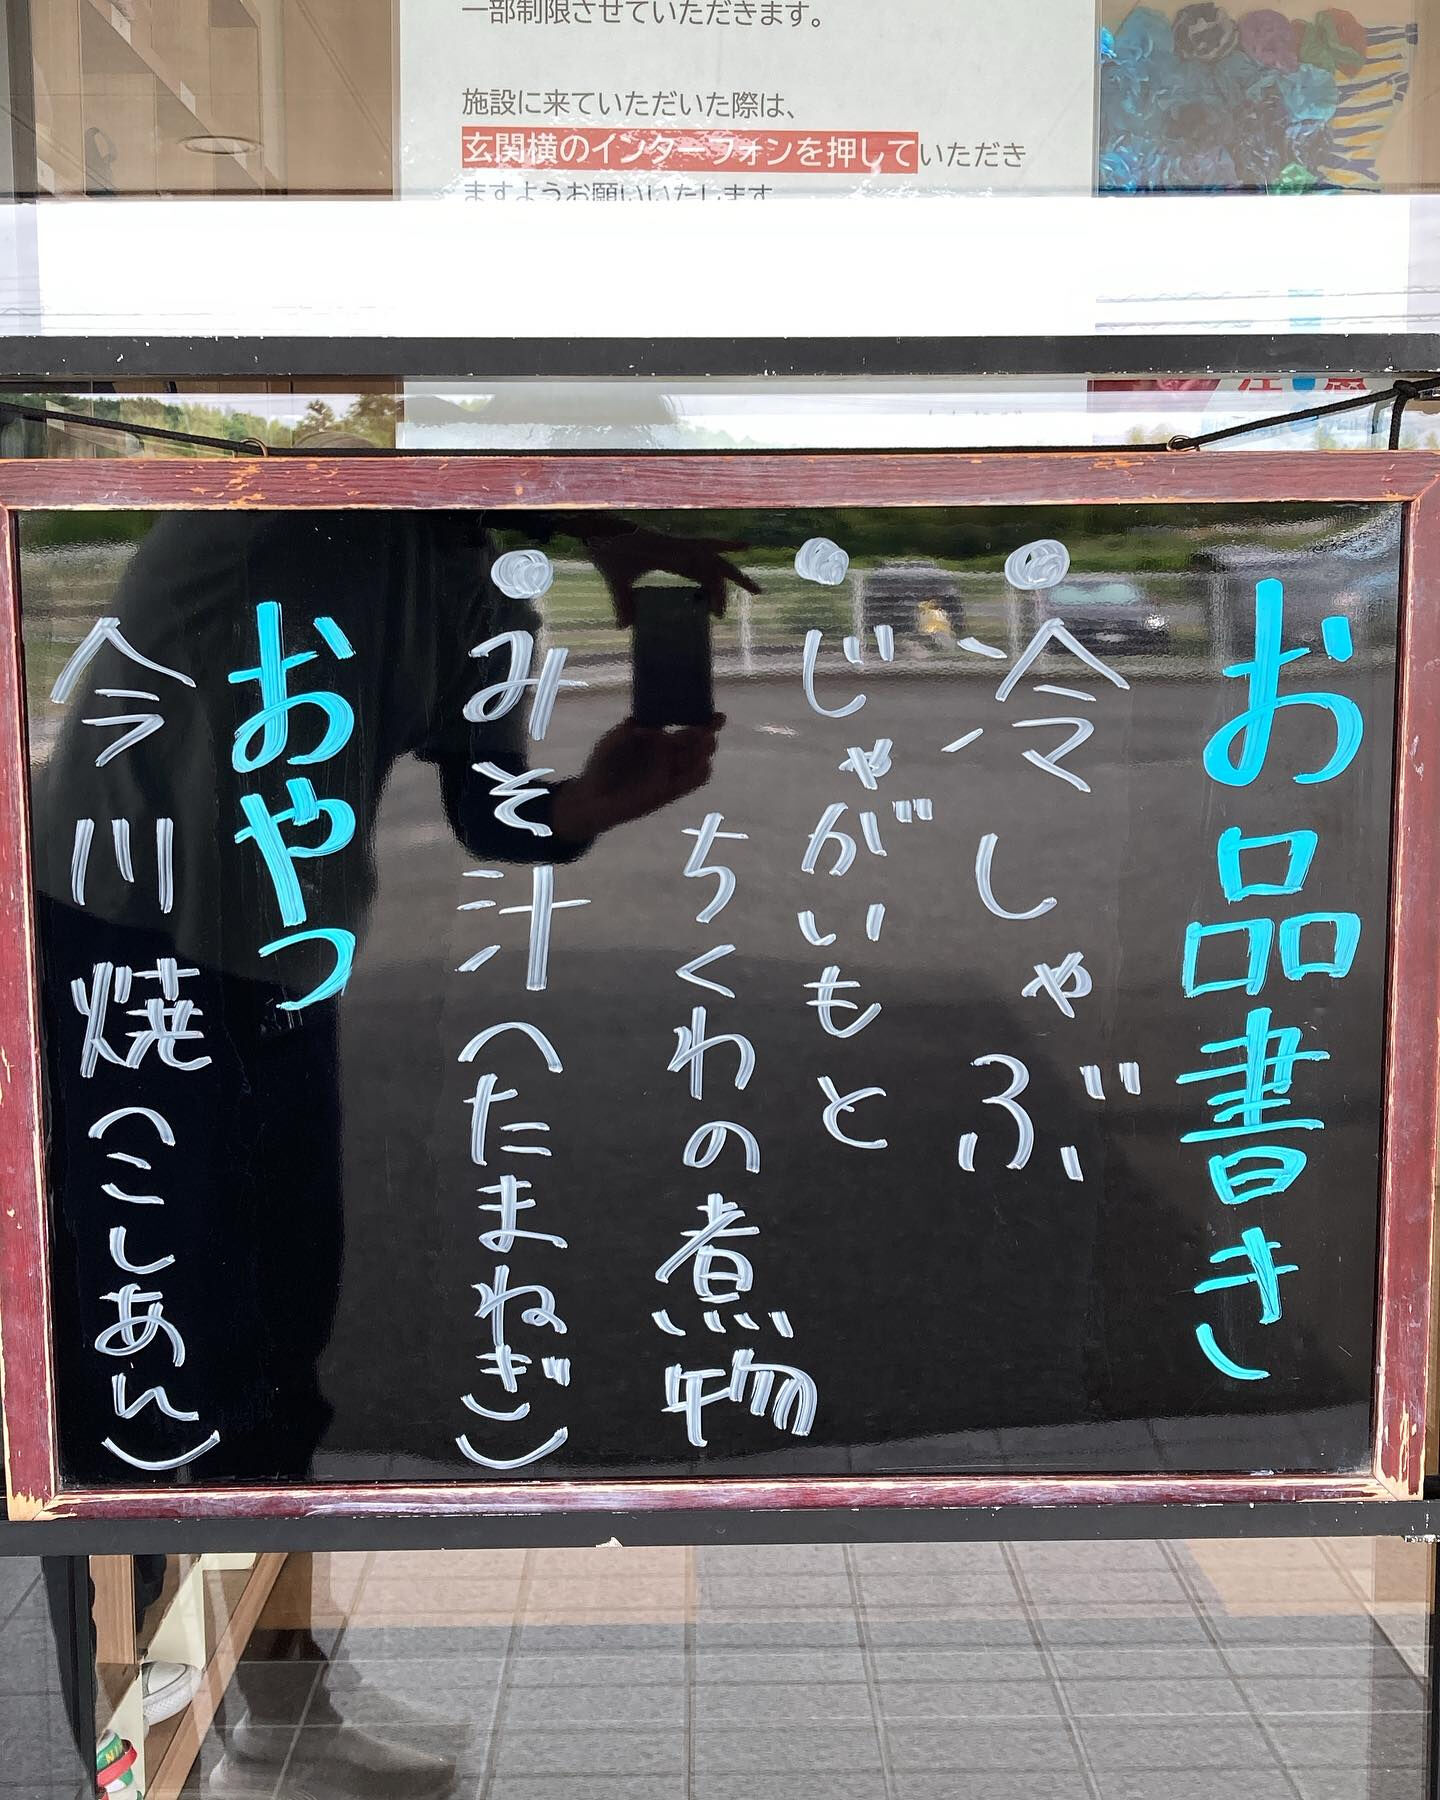 一部制限させていただきます。
施設に来ていただいた際は、
玄関横のインターフォンを押していただき
ますようお願いいたします
注 意
お品書き
冷しゃぶ
じゃがいもと
ちくわの煮物
みそ汁(たまねぎ)
おやつ
今川焼(こしあん)